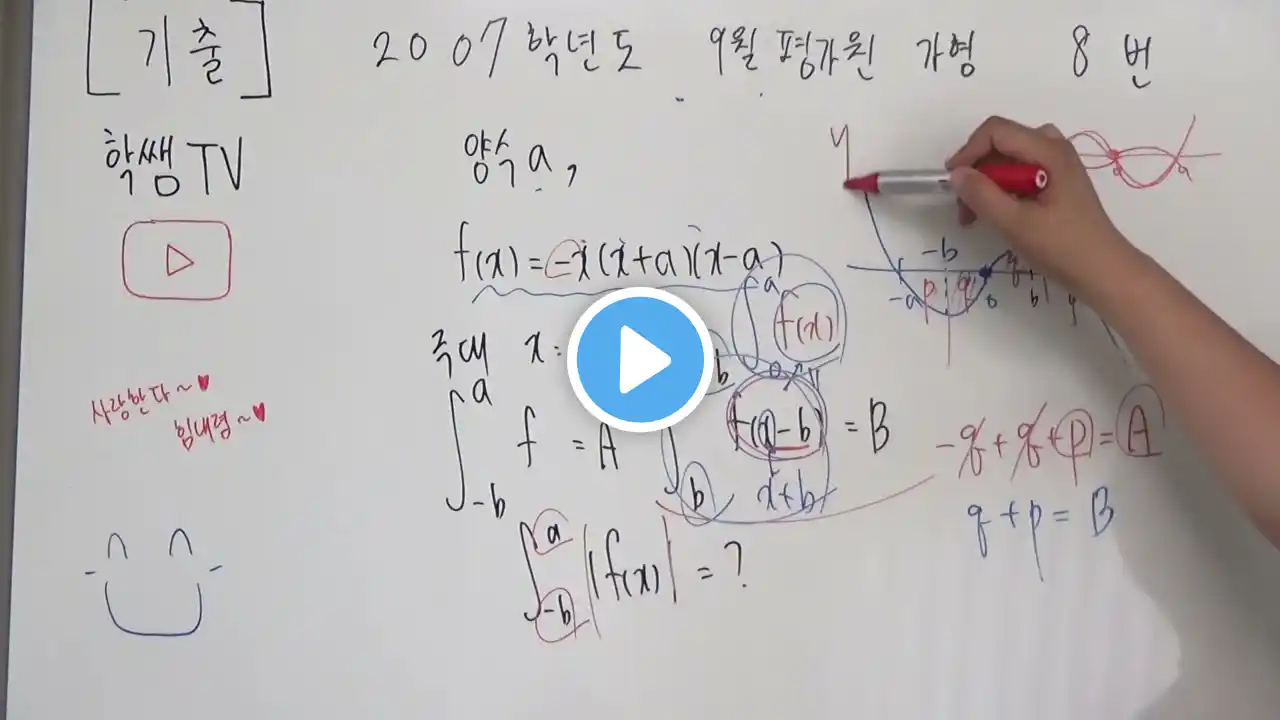 [기출] 2007학년도 9월 평가원 가형 8번
학쌤TV
양수 a,
f(x) = -x(x+a)(x-a)
극대 x =
∫_{-b}^{a} f = A
∫_{b} f(x-b) = B
x+b
∫^{a} f(x)
∫_{-b}^{a} |f(x)| = ?
사랑한다~♥
힘내렴~♥
y
-b
-a p q 0 b
a
-q + q + p = A
q + p = B